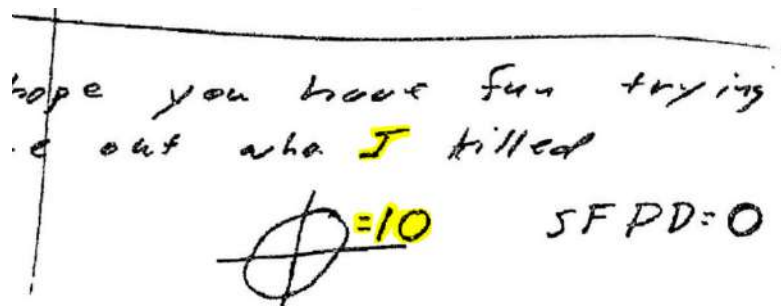 hope you have fun trying
e out who I killed
=10 SFPD=0